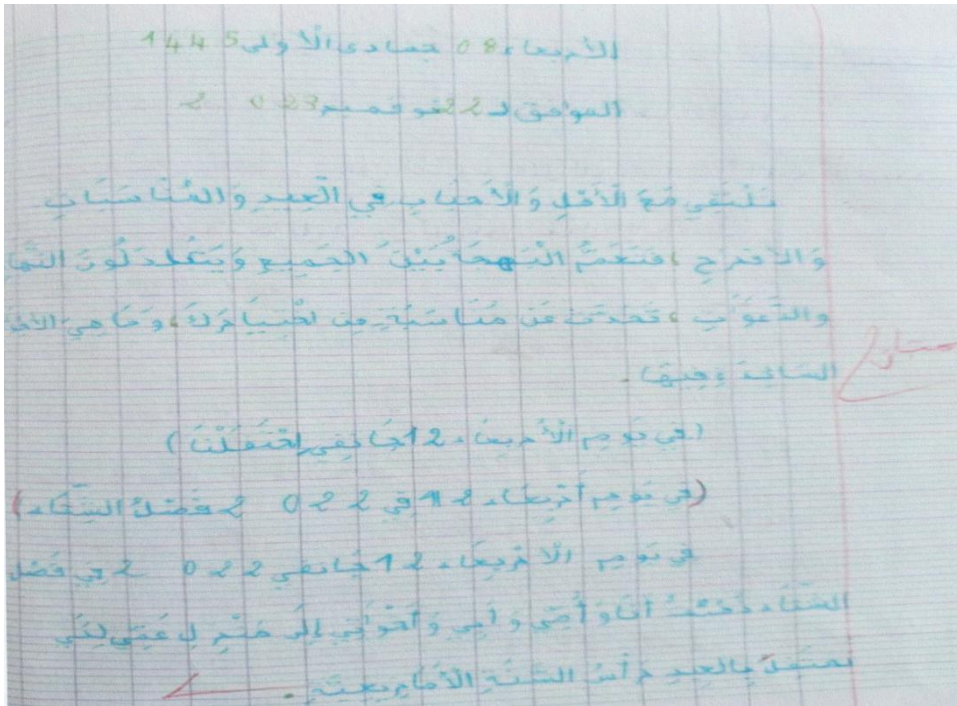 الأربعاء 08 جمادى الأولى 1445
الموافق لـ 22 نوفمبر 2023
نَلْتَقِي مَعَ الْأَهْلِ وَالْأَحْبَابِ فِي الْعِيدِ وَالْمُنَاسَبَاتِ
وَالأفراحِ، فَتَعُمُّ الْبَهْجَةُ بَيْنَ الْجَمِيعِ وَيَتَبَادَلُونَ
والدَّعَوَاتِ، تحدث عَن مُنَاسَبَةٍ مِن اخْتِيَارِكَ، وَمَا هِيَ
السائدة فِيهَا.
(فِي يَوْمِ الْأَرْبِعَاء 12 جَانْفِي احْتَفَلْنَا)
(فِي يَوْمِ أَرْبِعَاء 12 في 2022 فَصْلُ الشِّتَاء)
فِي يَوْمِ الْأَرْبِعَاء 12 جَانْفِي 2022 فِي فَصْلِ
الشتاء ذَهَبْتُ أَنَا وَأُمِّي وَأَبِي وَأَخَوَاتِي إِلَى مَنْزِلِ عَمِّي لِكَيْ
نحتفل بالعيد رَأْسُ السَّنَةِ الْأَمَازِيغِيَّةِ.